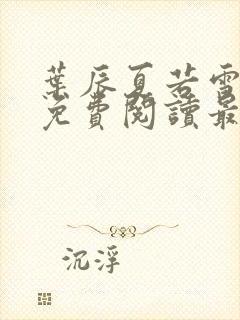 葉辰夏若雪
免費閱讀最
沉浮